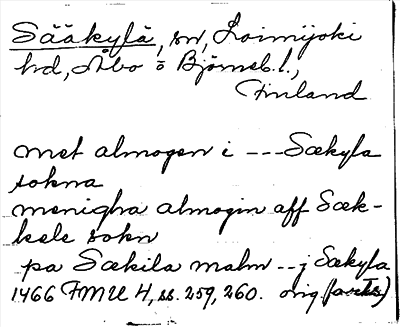 Sääkylä, sn, Loimijoki
hd, Åbo o Björneb. l.,
Finland
met almogen i --- Sækyla
sokna
menigha almogin aff Sæk-
kele sokn
pa Sækila malm -- j Sækyla
1466 FMU 4, ss. 259, 260. orig. (avtr.)